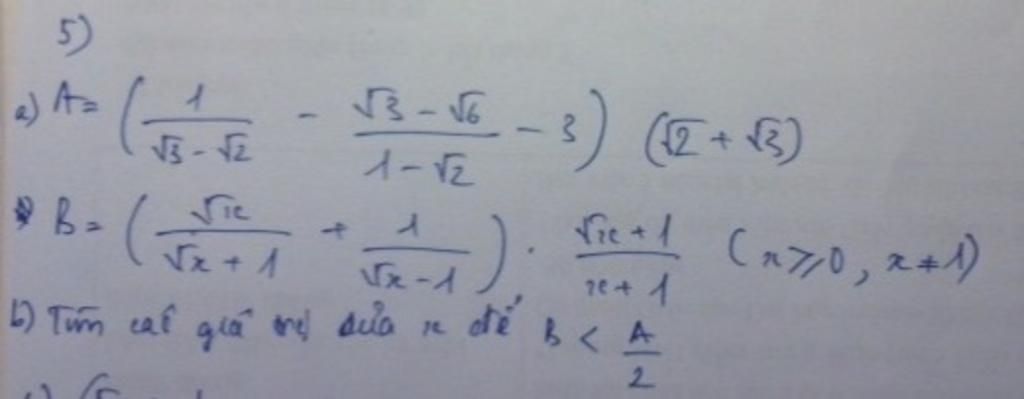 5)
a) A = (1/(√3 - √2) - (√3 - √6)/(1 - √2) - 3) (√2 + √3)
B = (√x/(√x + 1) + 1/(√x - 1)) . (√x + 1)/(x + 1) (x ⩾ 0, x ≠ 1)
b) Tìm các giá trị của x để B < A/2